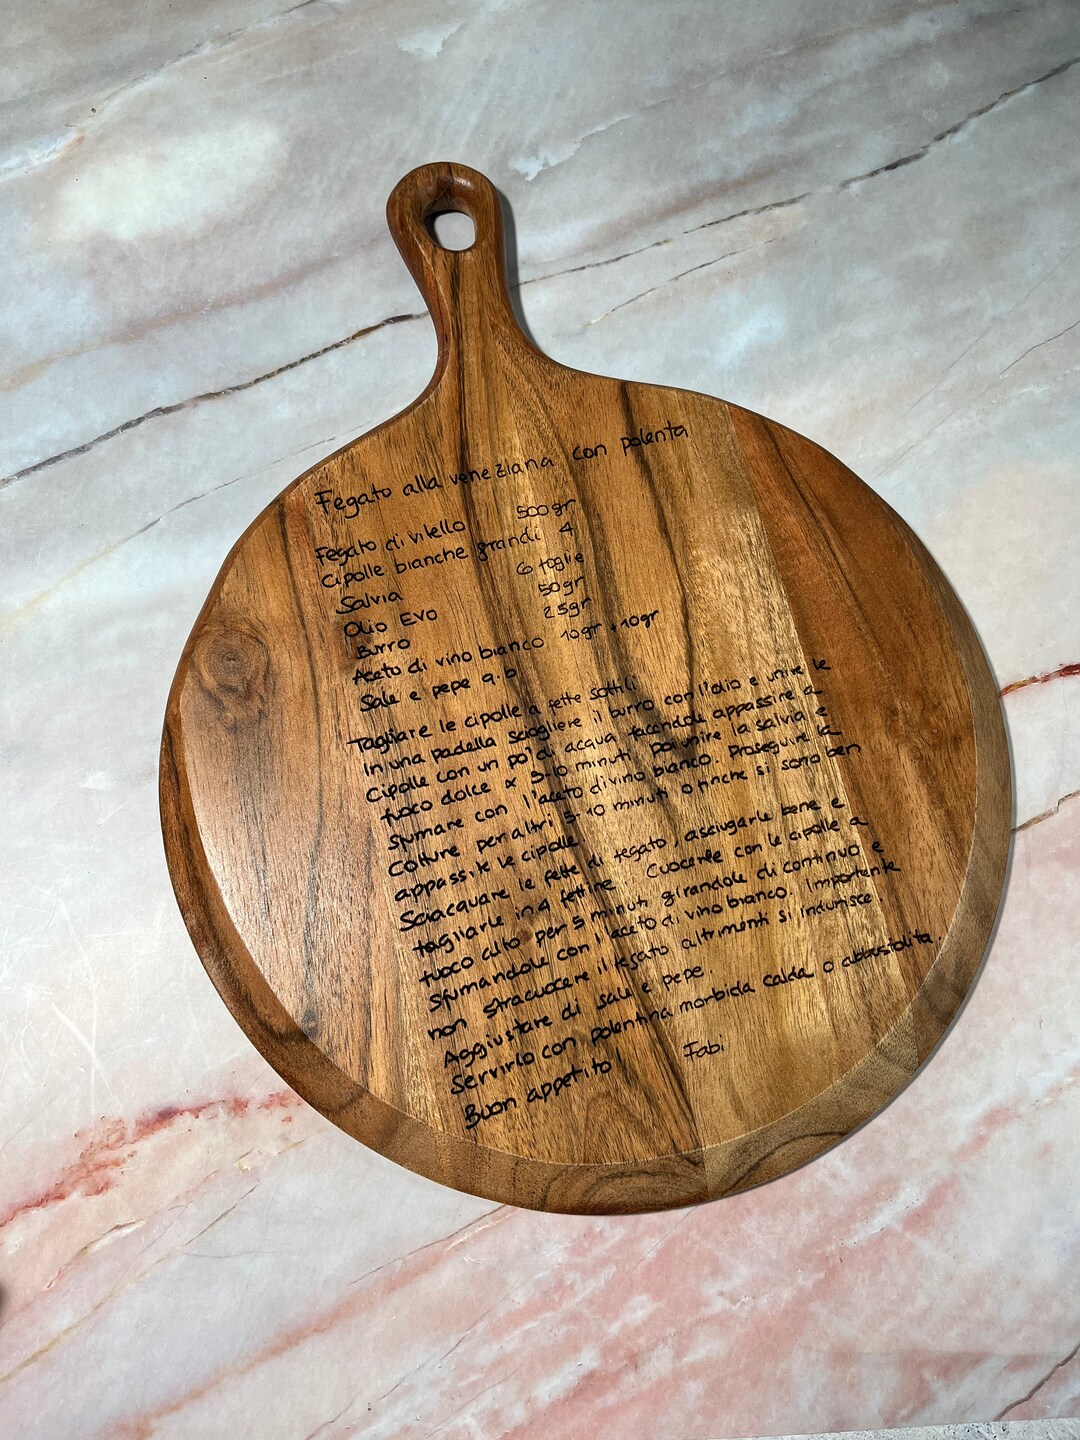 Fegato alla veneziana con polenta
Fegato di vitello 500gr
Cipolle bianche grandi 4
Salvia 6 foglie
Olio Evo 50gr
Burro 25gr
Aceto di vino bianco 10gr + 10gr
Sale e pepe q.b
Tagliare le cipolle a fette sottili
In una padella sciogliere il burro con l'olio e unire le
Cipolle con un po' di acqua facendole appassire a
fuoco dolce x 5-10 minuti. Poi unire la salvia e
sfumare con l'aceto di vino bianco. Proseguire la
Cottura per altri 5-10 minuti o finche si sono ben
appassite le cipolle.
Sciacquare le fette di fegato, asciugarle bene e
tagliarle in 4 fettine. Cuocerle con le cipolle a
fuoco alto per 5 minuti girandole di continuo e
sfumandole con l'aceto di vino bianco. Importante
non stracuocere il fegato altrimenti si indurisce.
Aggiustare di sale e pepe.
Servirlo con polentina morbida calda o abbrustolita.
Buon appetito! Fabi